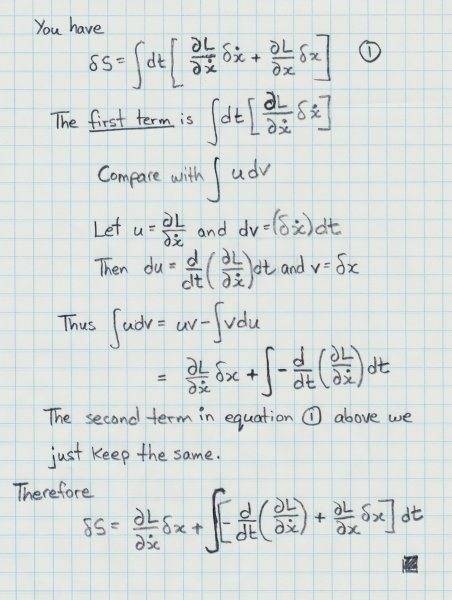 You have
δS = ∫dt[∂L/∂ẋ δẋ + ∂L/∂x δx] ①
The first term is ∫dt[∂L/∂ẋ δẋ]
Compare with ∫udv
Let u = ∂L/∂ẋ and dv = (δẋ)dt
Then du = d/dt(∂L/∂ẋ)dt and v = δx
Thus ∫udv = uv - ∫vdu
= ∂L/∂ẋ δx + ∫ - d/dt(∂L/∂ẋ)dt
The second term in equation ① above we
just keep the same.
Therefore
δS = ∂L/∂ẋ δx + ∫[- d/dt(∂L/∂ẋ) + ∂L/∂x δx]dt